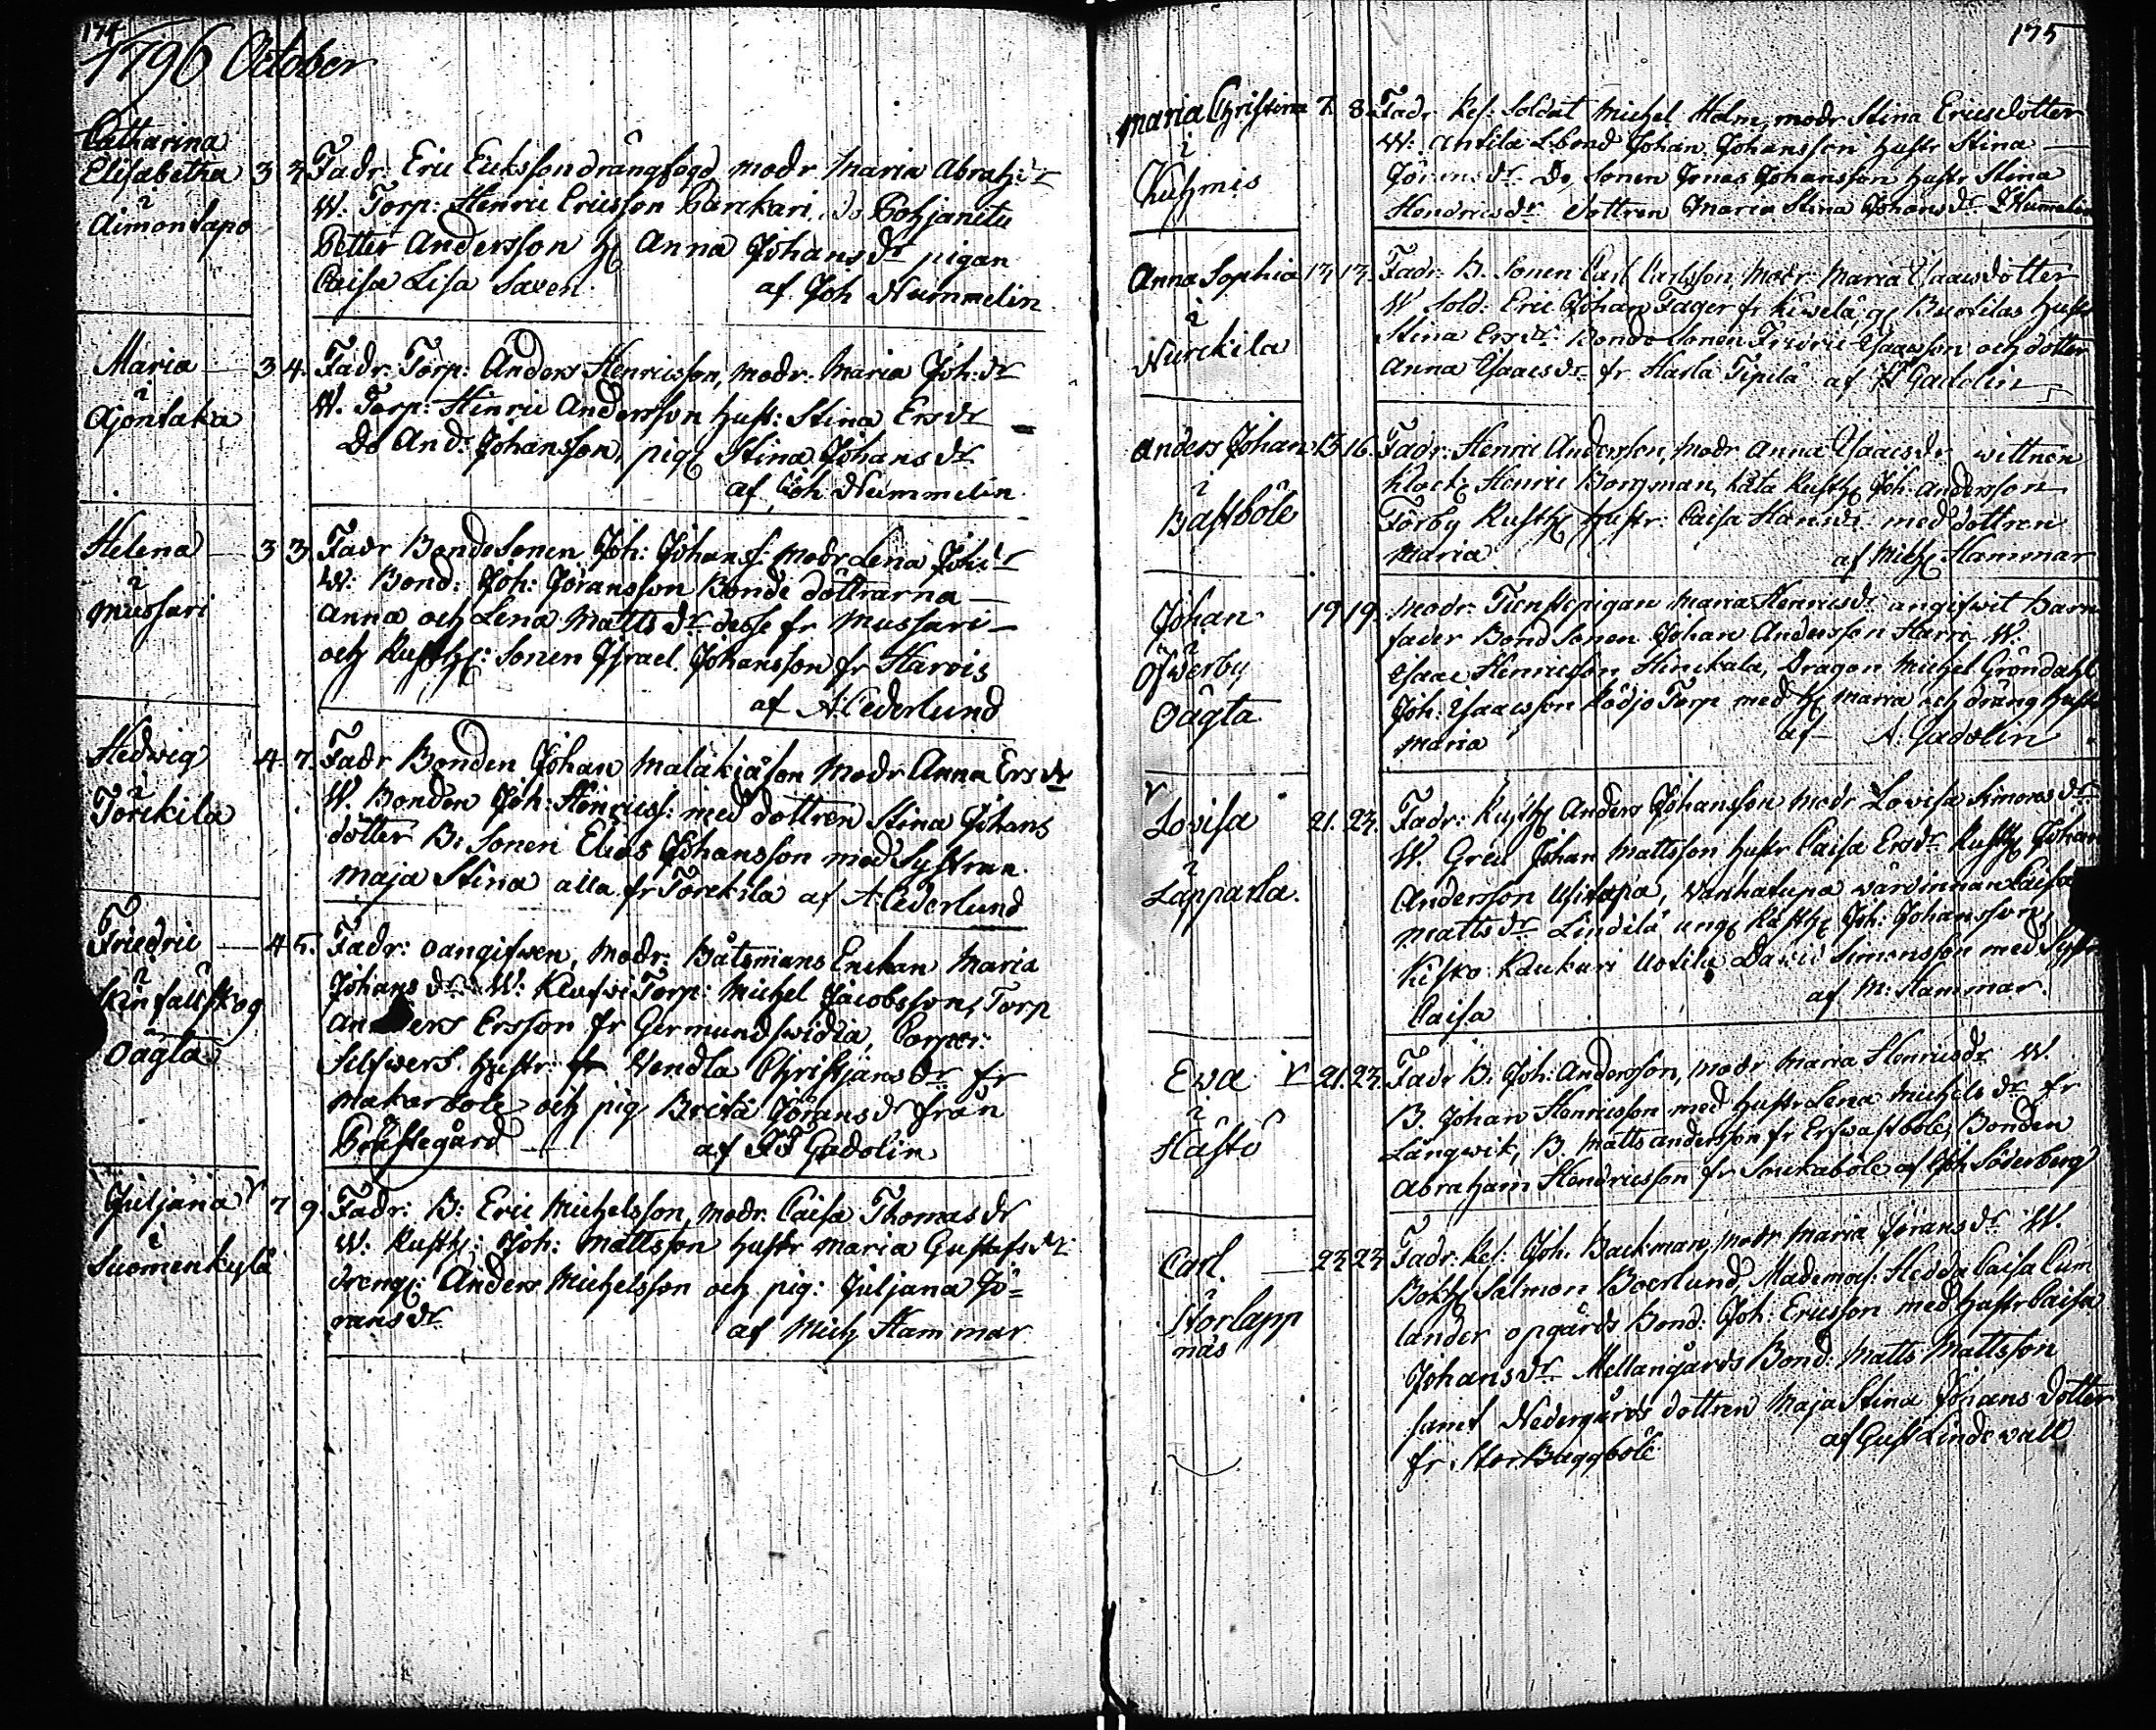 174
1796 October
Catharina
Elisabetha 3 4. Fadr: Eric Ericksson drängfogd, modr Maria Abrah:dr
i
Aimontapo
W: Torp: Henric Ericsson Parckari, do Pohjanitu
Petter Andersson H Anna Johansdr pigan
Caisa Lisa Saxen. af Joh Hummelin
Maria — 3 4. Fadr: Torp: Anders Henricsson, modr: Maria Joh:dr
i
Ajöntaka
W. Torp: Hinric Andersson Hust: Stina Ersdr
Do And: Johansson, pig Stina Johansdr
af Joh Hummelin
Helena — 3 3. Fadr Bondesonen Joh: Johans: modr Lena Joh:dr
i
Mussari
W: Bond: Joh: Jöransson Bonde döttrarna —
Anna och Lena Mattsdr desse fr Mussari —
och Rusth: Sonen Israel Johansson fr Harvis
af A Cederlund
Hedwig 4. 7. Fadr Bonden Johan Malakiäson Modr Anna Ersdr
i
Torckila
W. Bonden Joh: Henricss: med dottren Stina Johans
dotter B: Sonen Elias Johansson med Systran
Maja Stina alla fr Torckila af A Cederlund
Friedric — 4 5. Fadr: oangifwen, Modr: Båtsmans Enckan Maria
i
Skinfallskog
oägta
Johansdr W: Torp: Michel Jacobsson, Torp
Anders Ersson fr Germundswidia, Corpor:
Silfwers Hustr: fr Vendla Christjansdr fr
Makarbole och pig Brita Jöransdr från
Prästegård — af JJ Gadolin
Juljana r 7 9. Fadr: B: Eric Michelsson, modr. Caisa Thomasdr
i
Suomenkylä
W: Rusth: Joh: Mattsson Hustr Maria Gustafsdr
dreng: Anders Michelsson och pig: Juljana Jö=
ransdr af Mich Hammar
175
Maria Christina 7. 8. Fadr Res: Soldat Michel Holm, modr Stina Ericsdotter
i
Kuhmis
W: Antila L:bond Johan Johansson Hustr Stina —
Jöransdr Do, Sonen Jonas Johansson Hustr Stina
Hendricsdr dottren Maria Stina Johansdr J Humelin
Anna Sophia 13 13. Fadr: B. Sonen Carl Carlsson, Modr Maria Isaacsdotter
i
Nurckila
W Sold: Eric Johan Fager fr Kiwelä, Buotilas Hustr
Stina Ersdr Bonde Sonen Fridric Isaacsson och dotter
Anna Isaacsdr fr Harla Tipilä af Gadolin
Anders Johan 15 16. Fadr: Henric Andersson, Modr Anna Isaacsdr wittnen
i
Bastböle
Klock Henric Borgman, Kåta Rusth Joh: Andersson
Förby Rusth Hustr: Caisa Hansdr med dottren
Maria. af Mich Hammar
Johan 19 19. Modr. Tienstepigan Maria Henricsdr angifwit barn
i
Öfwerby
oägta
fader Bond Sonen Johan Andersson Harri W:
Isaac Henricsson, Hinckala, Dragon Michel Gröndahl
Joh: Isaacsson Rödjo Torp med H Maria och dräng Hust
Maria af A: Gadolin
r
Lovisa 21. 23. Fadr: Rusth Anders Johansson Modr Lovisa Simonsdr
i
Lapparla.
W. Gren Johan Mattsson Hustr Caisa Ersdr Rusth Johan
Andersson Usitapa, Wanhatupa wärdinnan Caisa
Mattsdr Lindilä ung Rusth Joh: Johansson,
Kisko Kaukuri Uotila David Simonsson med Systr
Caisa af M: Hammar.
Ewa r 21. 23. Fadr B: Joh: Andersson, modr Maria Henricsdr W.
i
Hästö
B. Johan Henricsson med Hustr Lena Michelsdr fr
Långwik, B. Matts Andersson fr Erswastbole, Bonden
Abraham Hendricsson fr Snickabole af Joh Söderberg
Carl. — 23 23. Fadr: Res: Joh: Backman, modr Maria Jöransdr W.
i
Storlapp
näs
Bokh Salmon Boerlund, Mademois: Hedda Caisa Cum
lander opgårds Bond: Joh: Ericsson med Hustr Caisa
Johansdr Mellangårds Bond: Matts Mattsson
samt Nedergårds dottren Maja Stina Johans dotter
fr Stor Baggböle af Gust Lindewall